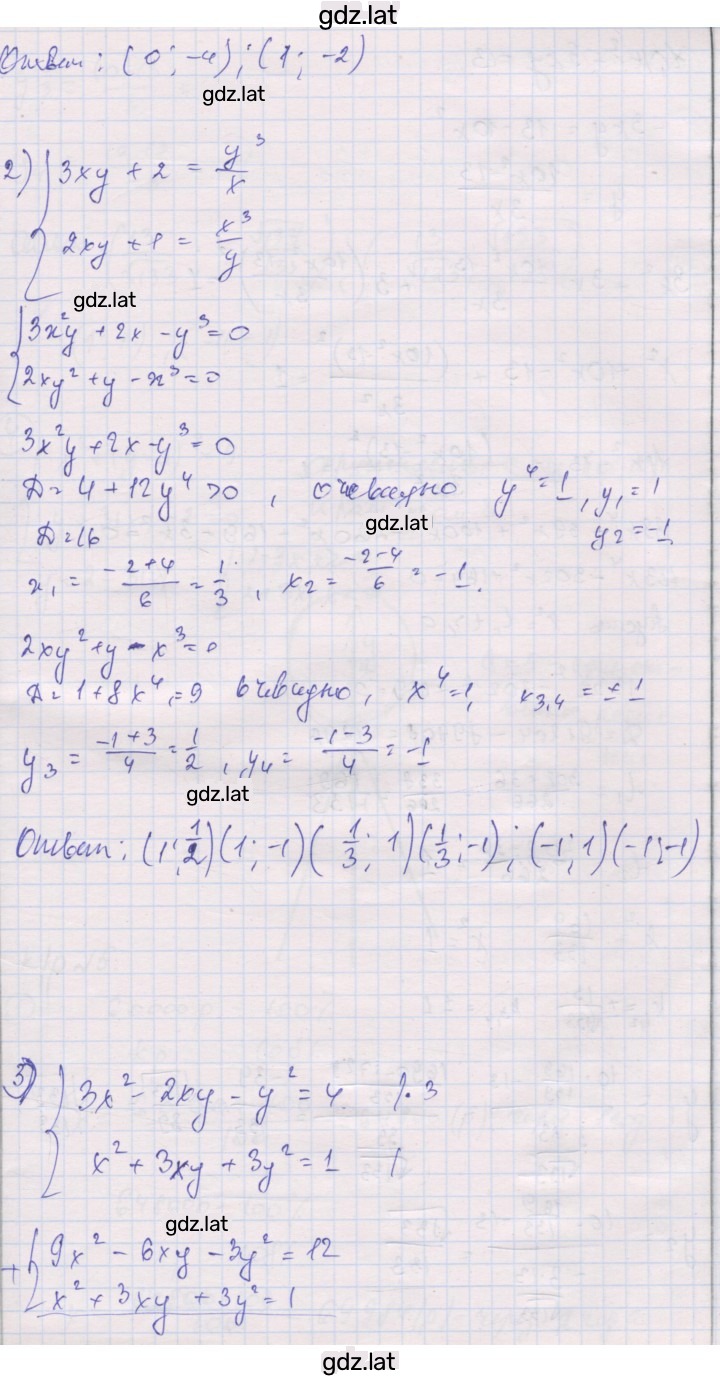 gdz.lat
Ответ: (0; -4); (1; -2)
gdz.lat
2) { 3xy + 2 = y³/x
2xy + 1 = x³/y
gdz.lat
{ 3x²y + 2x - y³ = 0
2xy² + y - x³ = 0
3x²y + 2x - y³ = 0
D = 4 + 12y⁴ > 0, очевидно y⁴ = 1, y₁ = 1
gdz.lat
D = 16 y₂ = -1
x₁ = (-2+4)/6 = 1/3, x₂ = (-2-4)/6 = -1.
2xy² + y - x³ = 0
D = 1 + 8x⁴, = 9 очевидно, x⁴ = 1, x₃,₄ = ± 1
y₃ = (-1+3)/4 = 1/2, y₄ = (-1-3)/4 = -1
gdz.lat
Ответ: (1; 1/2) (1; -1) (1/3; 1) (1/3; -1); (-1; 1) (-1; -1)
3) { 3x² - 2xy - y² = 4 | · 3
x² + 3xy + 3y² = 1 |
gdz.lat
+ { 9x² - 6xy - 3y² = 12
x² + 3xy + 3y² = 1
gdz.lat